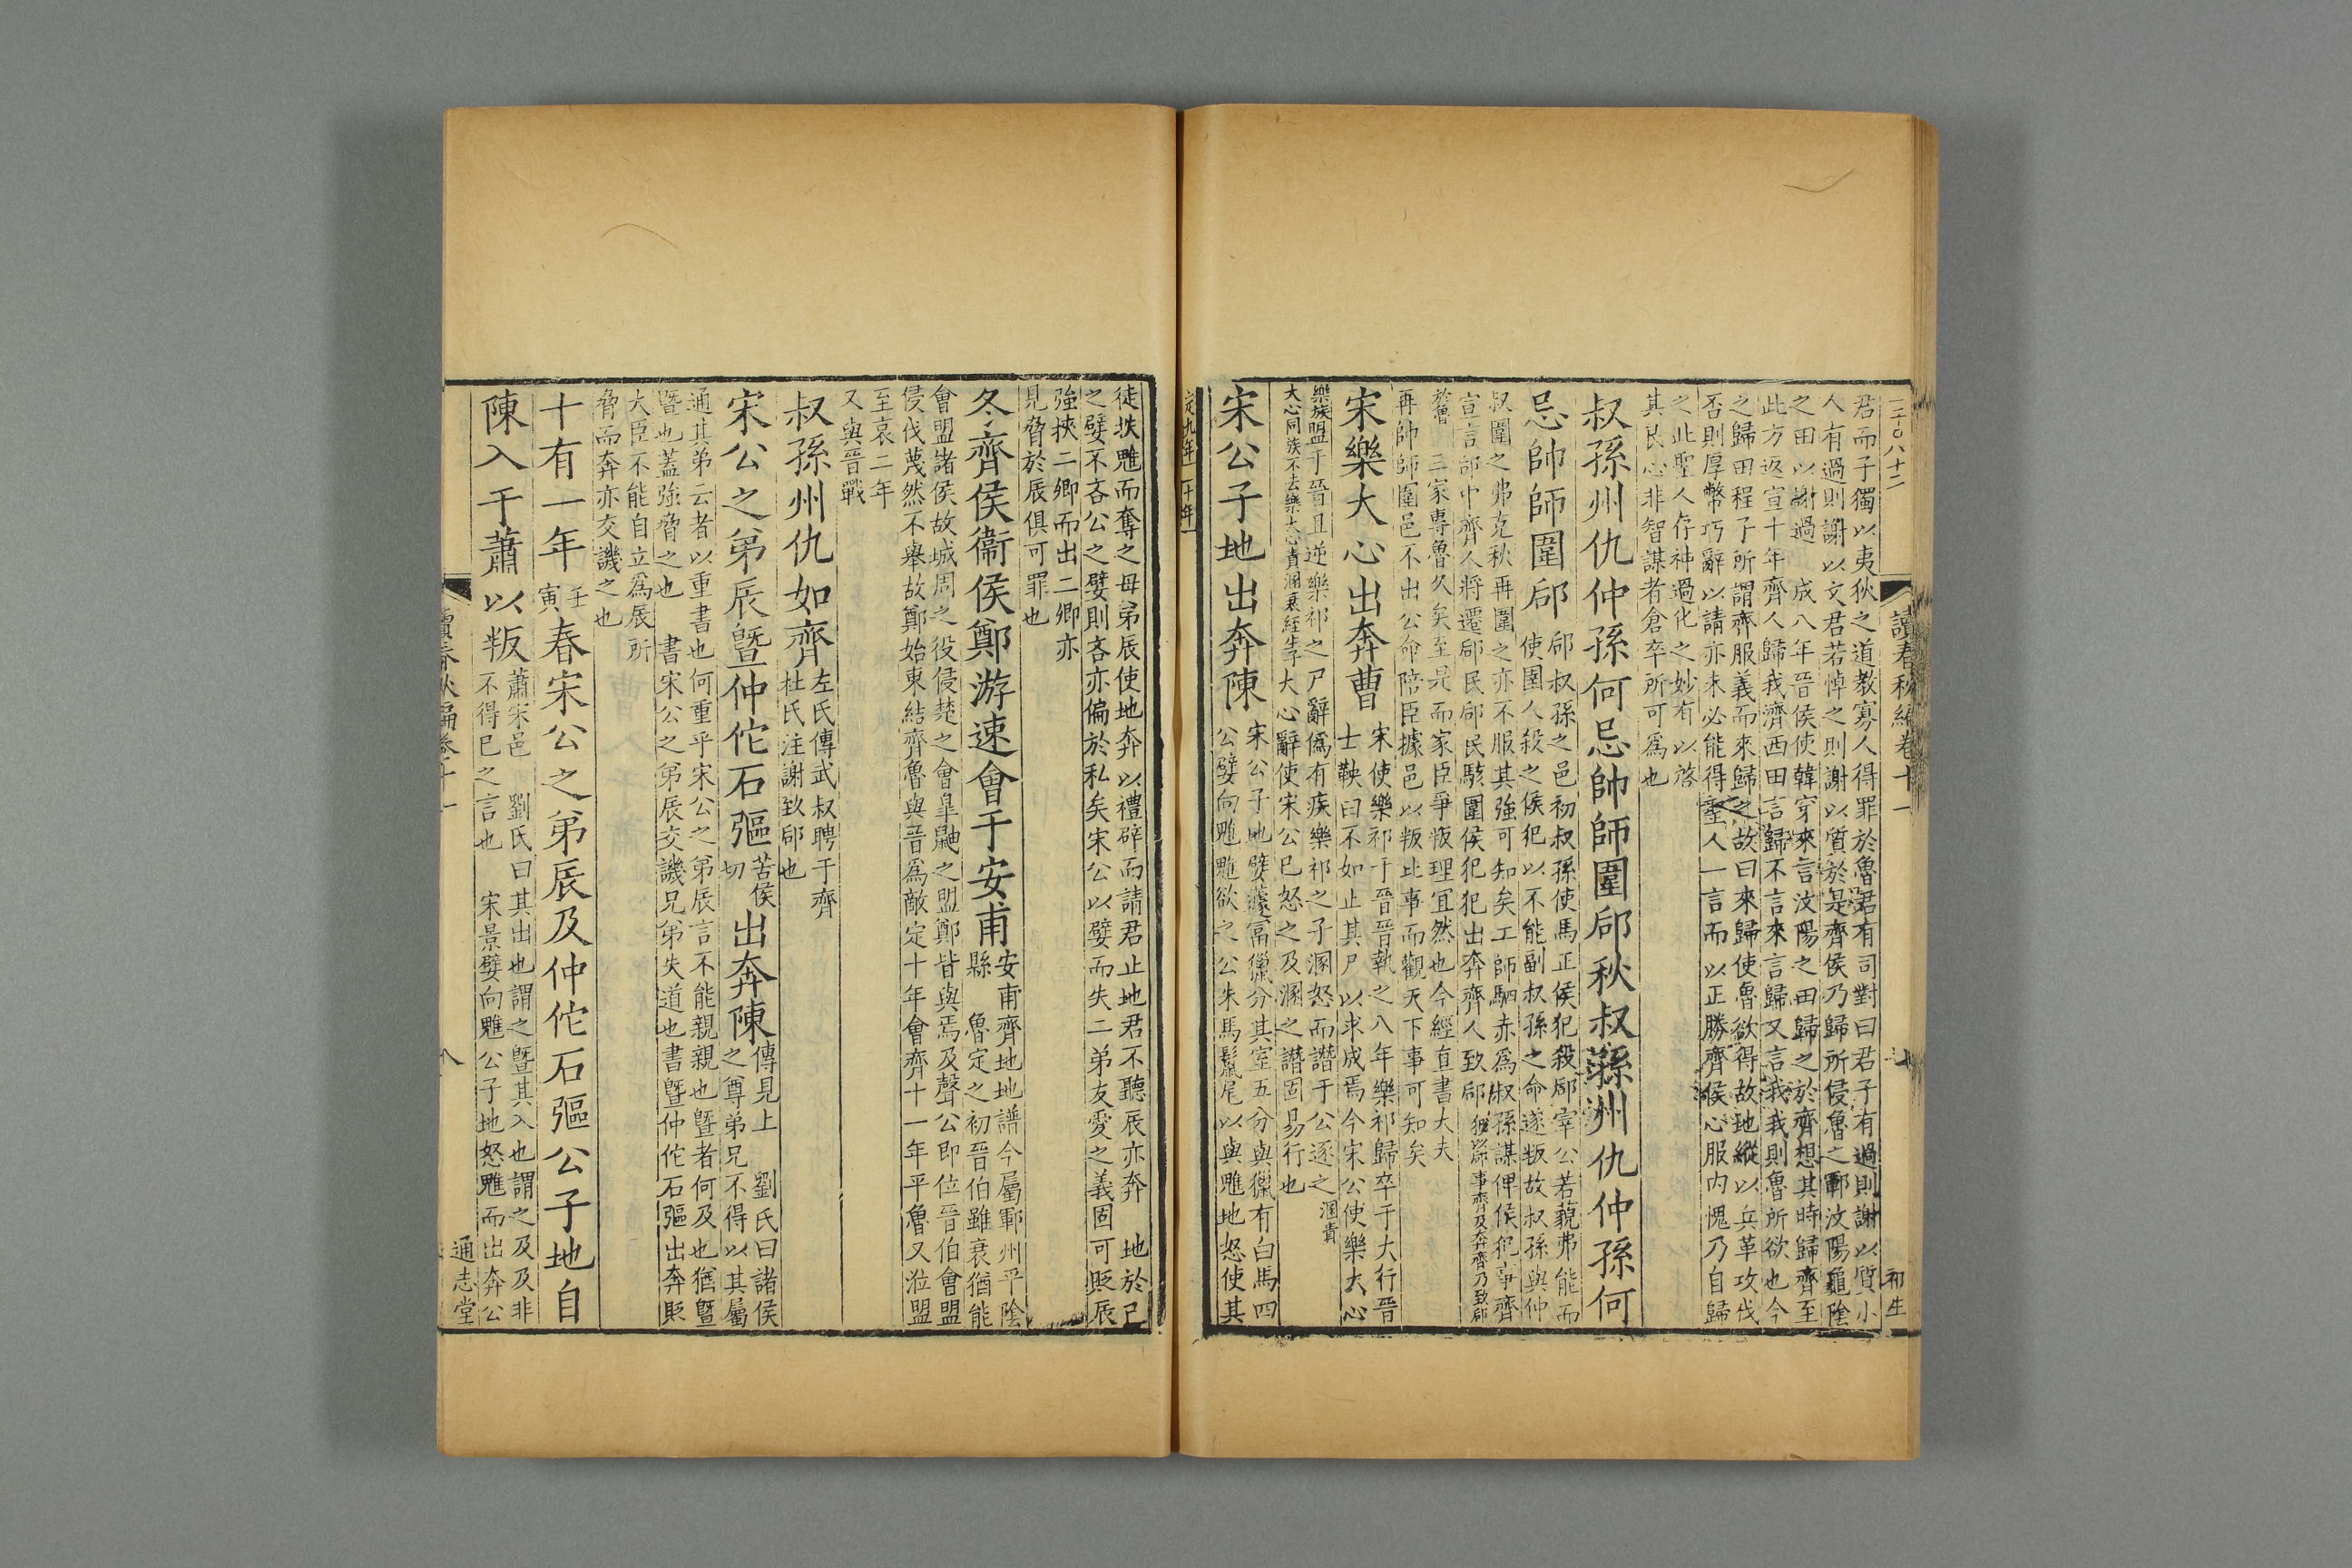 讀春秋編卷十一
七
初生
君而子獨以夷狄之道教寡人得罪於魯君有司對曰君子有過則謝以質小
人有過則謝以文君若悼之則謝以質於是齊侯乃歸所侵魯之鄆汶陽龜陰
之田以謝過　成八年晉侯使韓穿來言汶陽之田歸之於齊想其時歸齊至
此方返宣十年齊人歸我濟西田言歸不言來言歸又言我我則魯所欲也今
之歸田程子所謂齊服義而來歸之故曰來歸使魯欲得故地縱以兵革攻伐
否則厚幣巧辭以請亦未必能得聖人一言而以正勝齊侯心服內愧乃自歸
之此聖人存神過化之妙有以啓
其良心非智謀者倉卒所可爲也
叔孫州仇仲孫何忌帥師圍郈秋叔孫州仇仲孫何
忌帥師圍郈
郈叔孫之邑初叔孫使馬正侯犯殺郈宰公若藐弗能而
使圉人殺之侯犯以不能副叔孫之命遂叛故叔孫與仲
叔圍之弗克秋再圍之亦不服其強可知矣工師駟赤爲叔孫謀俾侯犯事齊
宣言郈中齊人將遷郈民郈民駭圍侯犯犯出奔齊人致郈
於魯　三家專魯久矣至是而家臣爭叛理宜然也今經直書大夫
再帥師圍邑不出公命陪臣據邑以叛此事而觀天下事可知矣
宋樂大心出奔曹
宋使樂祁于晉晉執之八年樂祁歸卒于大行晉
士鞅曰不如止其尸以求成焉今宋公使樂大心
樂族盟于晉且逆樂祁之尸辭僞有疾樂祁之子溷怒而譖于公逐之
大心辭使宋公巳怒之及溷之譖固易行也
宋公子地出奔陳
宋公子地嬖蘧富獵分其室五分與獵有白馬四
公嬖向魋魋欲之公朱馬鬛尾以與魋地怒使其
定九年　十年
徒抶魋而奪之母弟辰使地奔以禮辟而請君止地君不聽辰亦奔　地於己
之嬖不吝公之嬖則吝亦偏於私矣宋公以嬖而失二弟友愛之義固可貶辰
強挾二卿而出二卿亦
見脅於辰俱可罪也
冬齊侯衞侯鄭游速會于安甫
安甫齊地地譜今屬鄆州平陰
縣　魯定之初晉伯雖衰猶能
會盟諸侯故城周之役侵楚之會臯鼬之盟鄭皆與焉及聲公即位晉伯會盟
侵伐蔑然不舉故鄭始東結齊魯與晉爲敵定十年會齊十一年平魯又涖盟
至哀二年
又與晉戰
叔孫州仇如齊
左氏傳武叔聘于齊
杜氏注謝致郈也
宋公之弟辰暨仲佗石彄
苦侯
切
出奔陳
傳見上　劉氏曰諸侯
之尊弟兄不得以其屬
通其弟云者以重書也何重乎宋公之弟辰言不能親親也暨者何及也猶暨
暨也蓋強脅之也　書宋公之弟辰交譏兄弟失道也書暨仲佗石彄出奔貶
大臣不能自立爲辰所
脅而奔亦交譏之也
十有一年
壬
寅
春宋公之弟辰及仲佗石彄公子地自
陳入于蕭以叛
蕭宋邑　劉氏曰其出也謂之暨其入也謂之及及非
不得已之言也　宋景嬖向魋公子地怒魋而出奔公
讀春秋編卷十一
八
通志堂